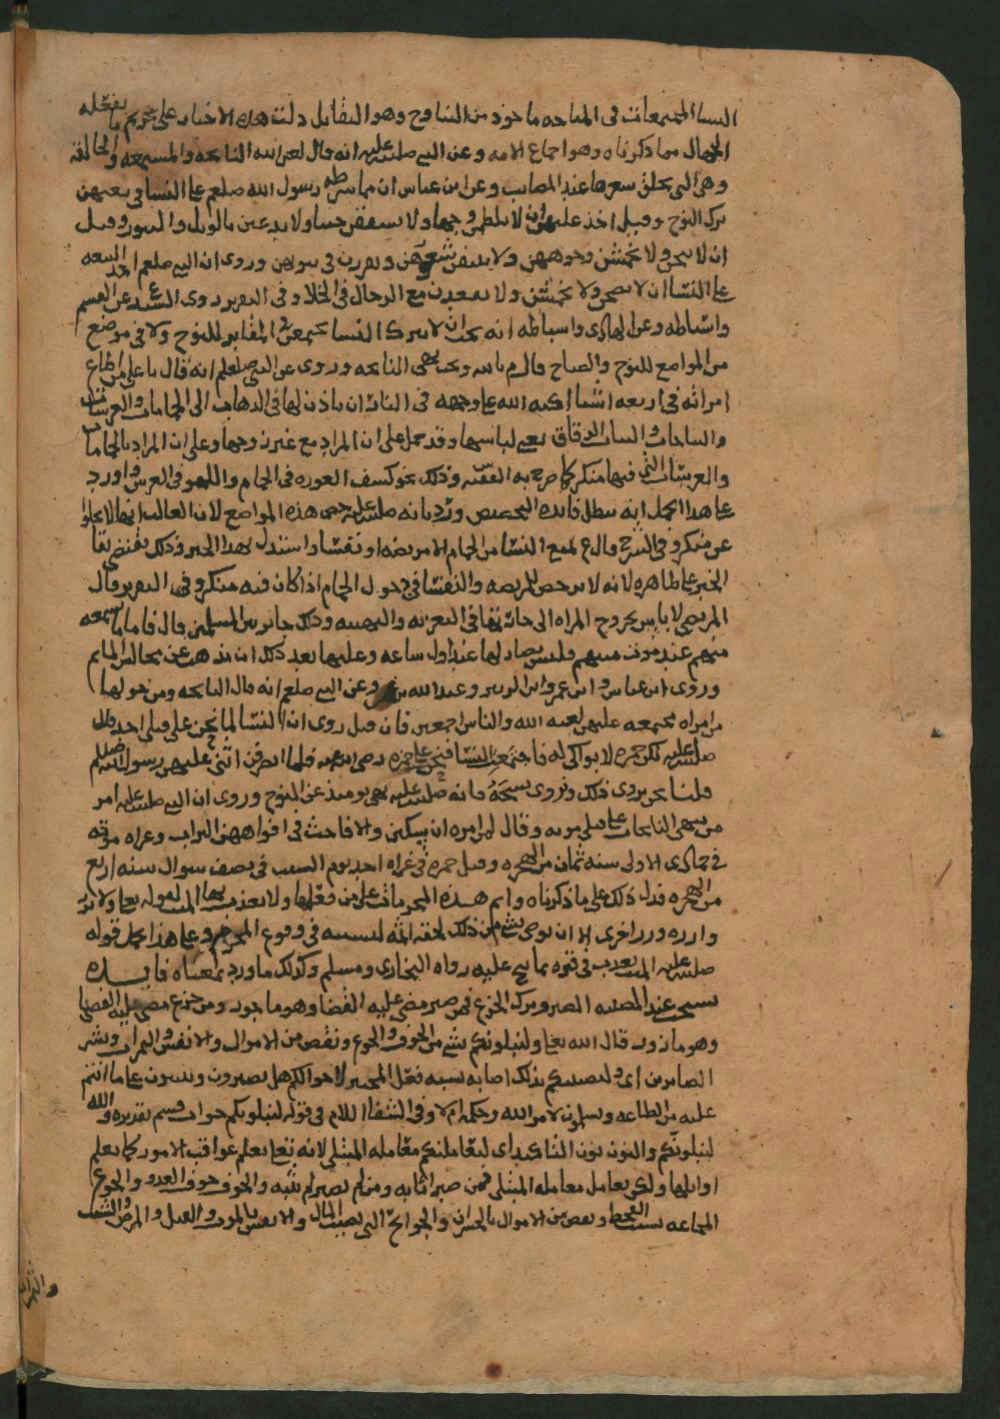 النسا المجتمعات فى المناحه ماخوذ من التناوح وهو التقابل دلت هذه الاخبار على تحريم ما يفعله
الجهال مما ذكرناه وهو اجماع الامه وعن النبي صلى الله عليه انه قال لعن الله النايحه والمستمعه والحالقه
وهي التي تحلق شعرها عند المصايب وعن ابن عباس ان مما شرطه رسول الله صلعم على النسا في بيعتهن
ترك النوح وقيل اخذ عليهن ان لا يلطمن وجها ولا يشققن جيبا ولا يدعين بالويل والثبور وقيل
ان لا ينحن ولا يخمشن وجوههن ولا ينتفن شعورهن ويقرن في بيوتهن وروي ان النبي صلعم اخذ البيعه
على النسا ان لا ينحن ولا يخمشن ولا يقعدن مع الرجال في الخلا وفي التقرير روى السيد عن القسم
واسباطه وعن الهادي واسباطه انه يجب ان لا يترك النسا يجتمعن في المقابر للنوح ولا في موضع
من المواضع للنوح والصياح قال م بالله ويجب نهي النايحه وروي عن النبي صلعم انه قال يا علي من اطاع
امراته في اربعه اشيا اكبه الله على وجهه في النار ان ياذن لها في الذهاب الى الحمامات والعرسات
والنياحات والثياب الرقاق يعني لباسها وقد حمل على ان المراد مع غير زوجها وعلى ان المراد بالحمامات
والعرسات التي فيها منكر كما صرح به وذلك نحو كشف العوره في الحمام واللهو في العرس واورد
على هذا الحمل انه يبطل فايده التخصيص ورد بانه صلى الله عليه خص هذه المواضع لان الغالب انها لا تخلوا
عن منكر وفي الشرح قال ع تمنع النسا من الحمام الا مريضه او نفسا واستدل بهذا الخبر وذلك يقتضي بقا
الخبر على ظاهره لانه لا يرخص للمريضه والنفسا في دخول الحمام اذا كان فيه منكر وفي التقرير قال
المرتضى لا باس بخروج المراه الى جارتها في التعزيه والتهنيه وذلك جايز بين المسلمين قال فاما ما يسمعه
منهم عند موت ميتهم فليس بضار لها عند اول ساعه وعليها بعد ذلك ان تذهب عن مجالس الماتم
وروى ابن عباس وابن عمر وابن الزبير وعبد الله بن وعن النبي صلعم انه قال النايحه ومن حولها
من امراه مجتمعه عليهن لعنه الله والناس اجمعين فان قيل روي ان النسا لما نحن على قتلى احد قال
صلى الله عليه لكن حمزه لا بواكي له فاجتمعن النسا فنحن على حمزه رضي الله عنه فلما انصرفن اثنى عليهن رسول الله صلعم
قلنا نحن نروي ذلك ونروي نسخه فانه صلى الله عليه نهى يومئذ عن النوح وروي ان النبي صلى الله عليه امر
من نهى النايحات على قتلى موته وقال لمرهن ان يسكتن والا فاحث في افواههن التراب وغزاه موته
في جمادى الاولى سنه ثمان من الهجره وقتل حمزه في غزاه احد يوم السبت في نصف شوال سنه اربع
من الهجره فدل ذلك على ما ذكرناه واثم هذه المحرمات على من فعلها ولا يعذب بها الميت لقوله تعالى ولا تزر
وازره وزر اخرى الا ان يوصي بشي من ذلك لحقه اثمه لتسببه في وقوع المحرم وعلى هذا يحمل قوله
صلى الله عليه الميت يعذب في قبره بما نيح عليه رواه البخاري ومسلم وكذلك ما ورد بمعناه فايده
يستحب عند المصيبه الصبر وترك الجزع فمن صبر مضى عليه القضا وهو ماجور ومن جزع مضى عليه القضا
وهو مازور قال الله تعالى ولنبلونكم بشي من الخوف والجوع ونقص من الاموال والانفس والثمرات وبشر
الصابرين اي ولنصيبنكم بذلك اصابه تشبه فعل المختبر لاحوالكم هل تصبرون وتثبتون على ما انتم
عليه من الطاعه وتسلمون لامر الله وحكمه ام لا وفي الشفا اللام في قوله لنبلونكم جواب قسم تقديره والله
لنبلونكم والنون نون التاكيد اي لنعاملنكم معامله المبتلي لانه تعالى يعلم عواقب الامور كما يعلم
اوايلها ولكن يعامل معامله المبتلي فمن صبر اثابه ومن لم يصبر لم يثبه والخوف خوف العدو والجوع
المجاعه بسبب القحط ونقص من الاموال بالخسران والجوايح التي تصيب المال والانفس بالموت والقتل والمرض والشيب
والثمرات